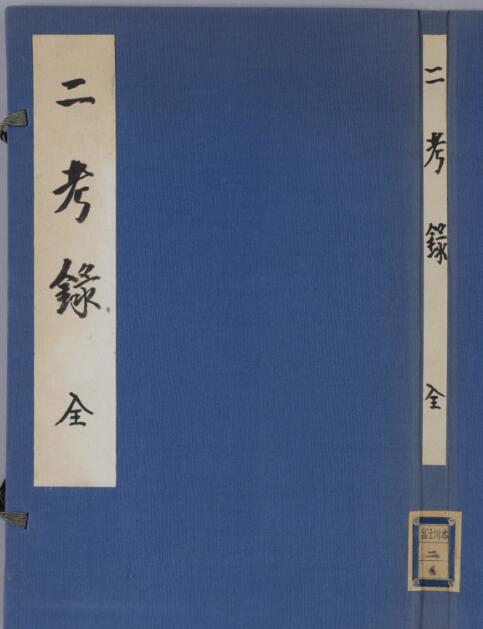 二考錄 全
二考錄 全
富士川本
二
4